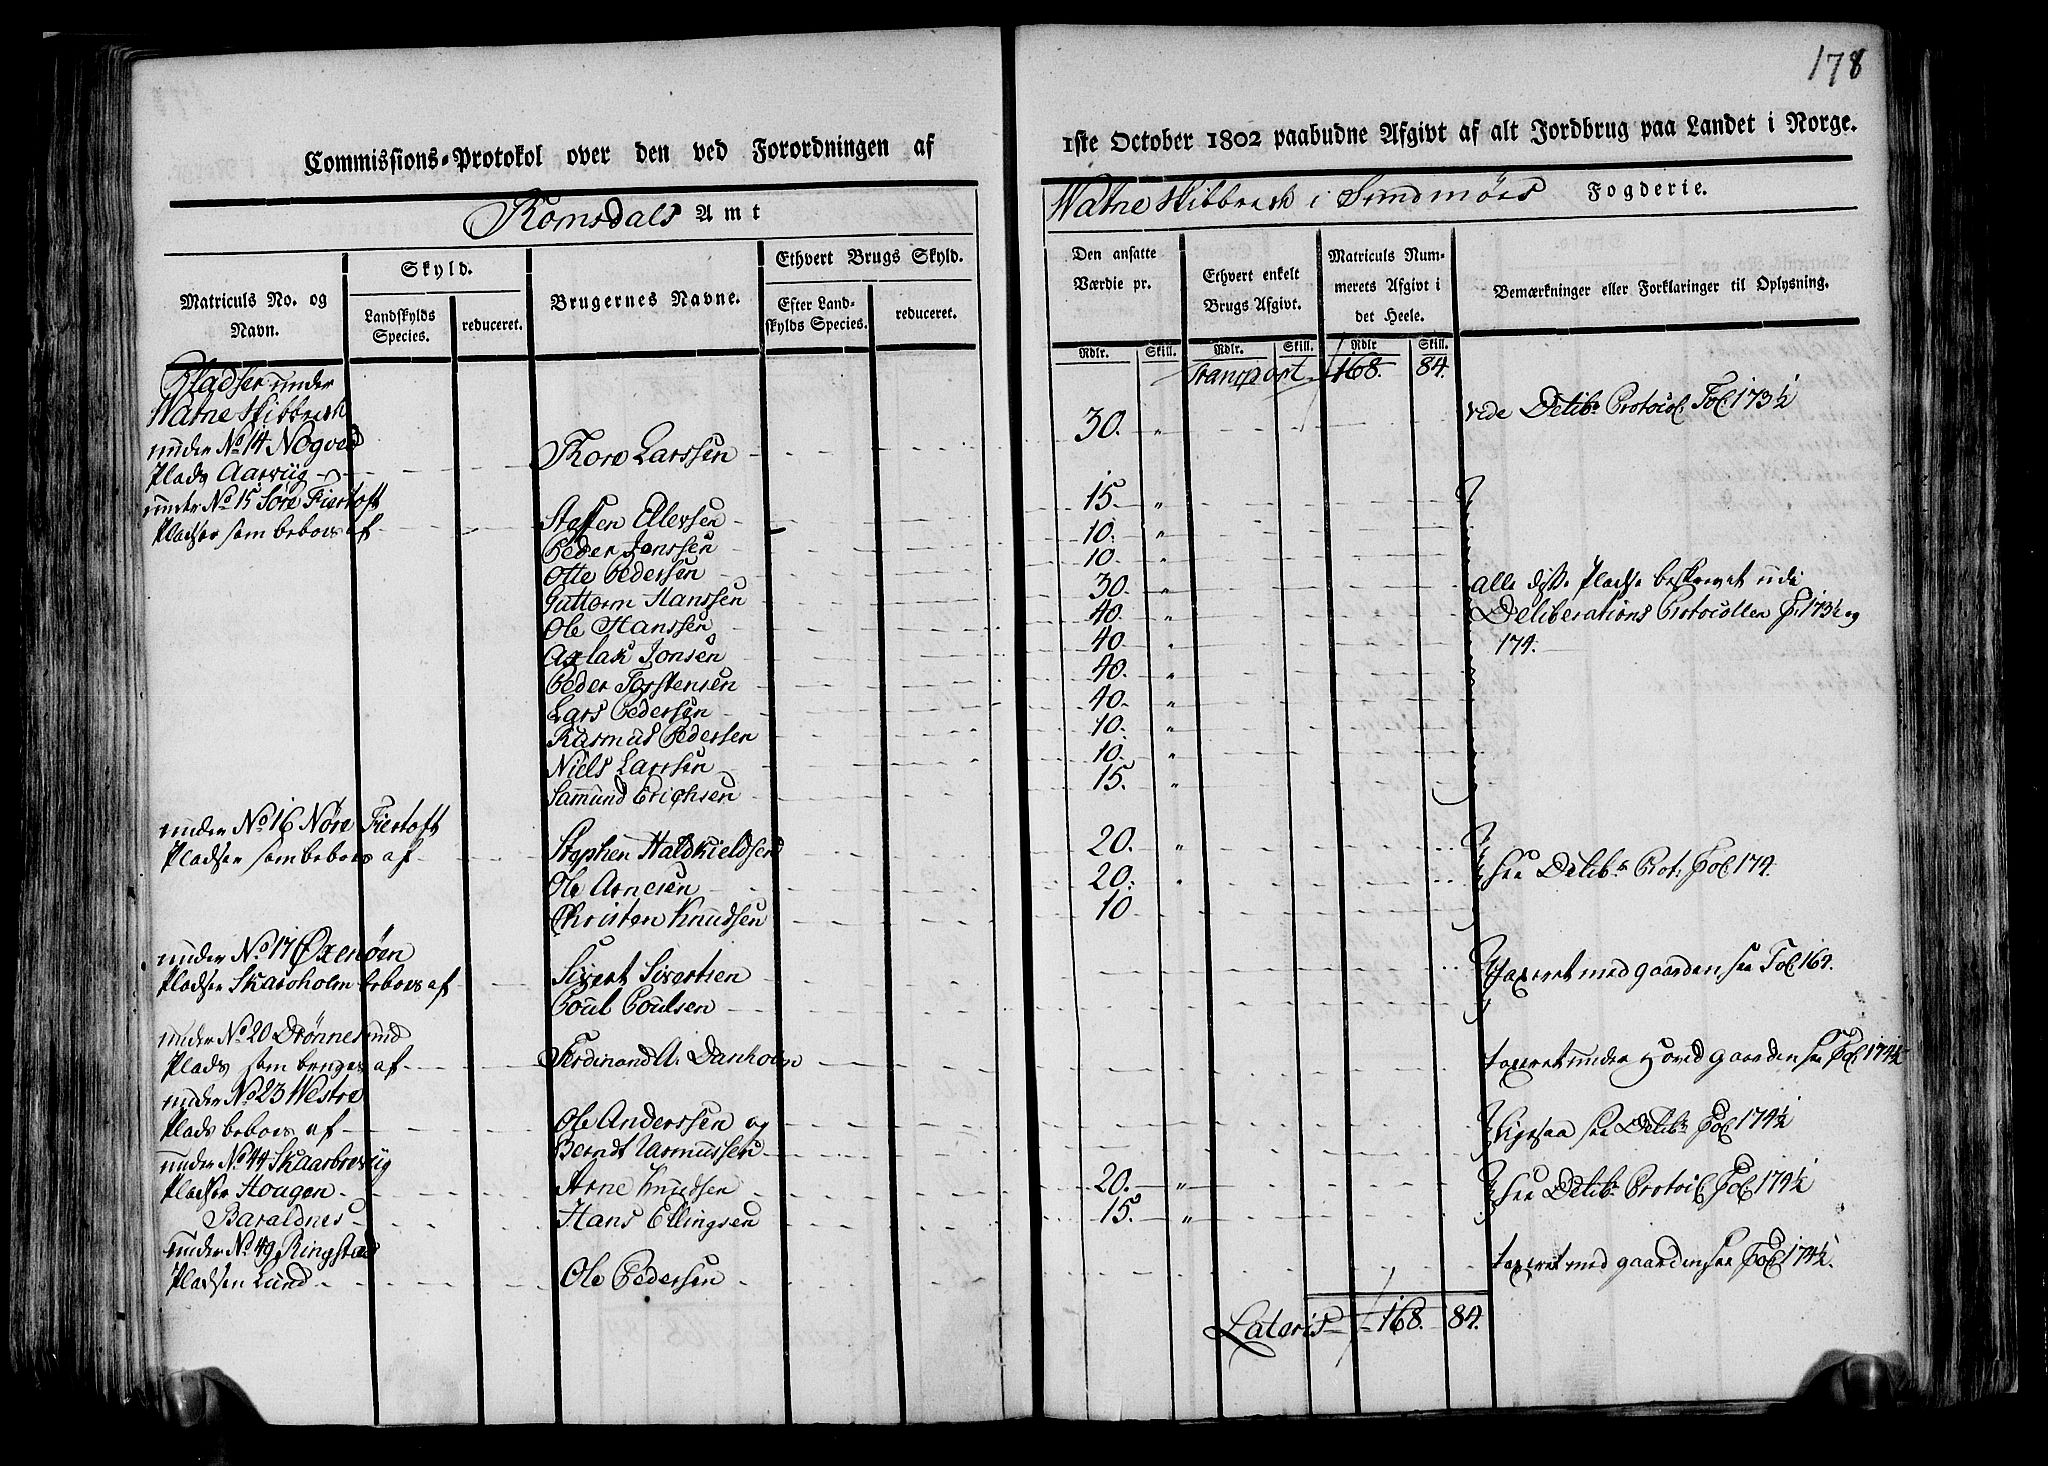 178
Commissions-Protokol over den ved Forordningen af 1ste October 1802 paabudne Afgivt af alt Jordbrug paa Landet i Norge.
Romsdals Amt
Watne Skibbrede i Sundmørs Fogderie.
Matriculs No. og Navn.
Skyld.
Landskylds Species.
reduceret.
Brugernes Navne.
Ethvert Brugs Skyld.
Efter Landskylds Species.
reduceret.
Den ansatte Værdie pr.
Ethvert enkelt Brugs Afgivt.
Matriculs Nummerets Afgivt i det Heele.
Bemærkninger eller Forklaringer til Oplysning.
Rdlr. Skill. Rdlr. Skill. Rdlr Skill.
Transport 168. 84.
Pladser under
Watne Skibbrede
under No. 14 Nogved
Plads Aarviig Tore Larssen 30. " vide Delib: Protocol: Fol 173½
under No 15 Søre Fiertoft
Pladser som beboes af Staffen Ellevsen 15. "
Peder Jonssen 10. "
Otte Pedersen 10. "
Guttorm Hanssen 30. " alle disse Pladse beskrevet udi
Ole Hanssen 40. " Deliberations Protocollen F. 173½ og
Aslak Jonsen 40. " 174.
Peder Torstensen 40. "
Lars Pedersen 40. "
Rasmus Pedersen 10. "
Niels Larssen 10. "
Samund Erichsen 15. "
under No. 16 Nøre Fiertoft
Pladser som beboes af Stephen Haldkieldsen 20. "
Ole Arnesen 20. " see Delib: Prot: Fol 174.
Christen Knudsen 10
under No. 17 Øxenøen
Pladsen Skaroholm beboes af Sivert Sivertsen Taxeret med gaarden see Fol 164.
Poul Poulsen
under No 20 Drønnesund
Plads som bruges af Ferdinand A. Danholm taxeret under Hovedgaarden see Fol 174½
under No 23 Westre
Plads beboes af Ole Anderssen og ligesaa see Delib: Fol 174½
Berndt Rasmussen
under No. 44 Skaarbrevig
Pladser Hougen Arne Knudsen 20. " see Delib: Protocl Fol 174½
Baraldnes Hans Ellingsen 15. "
under No. 49 Ringstad
Pladsen Lund Ole Pedersen taxeret med gaarden see Fol 174½.
Lateris 168. 84.